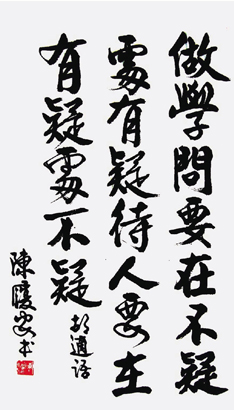 做學問要在不疑
處有疑待人要在
有疑處不疑
胡適語
陳騰光书